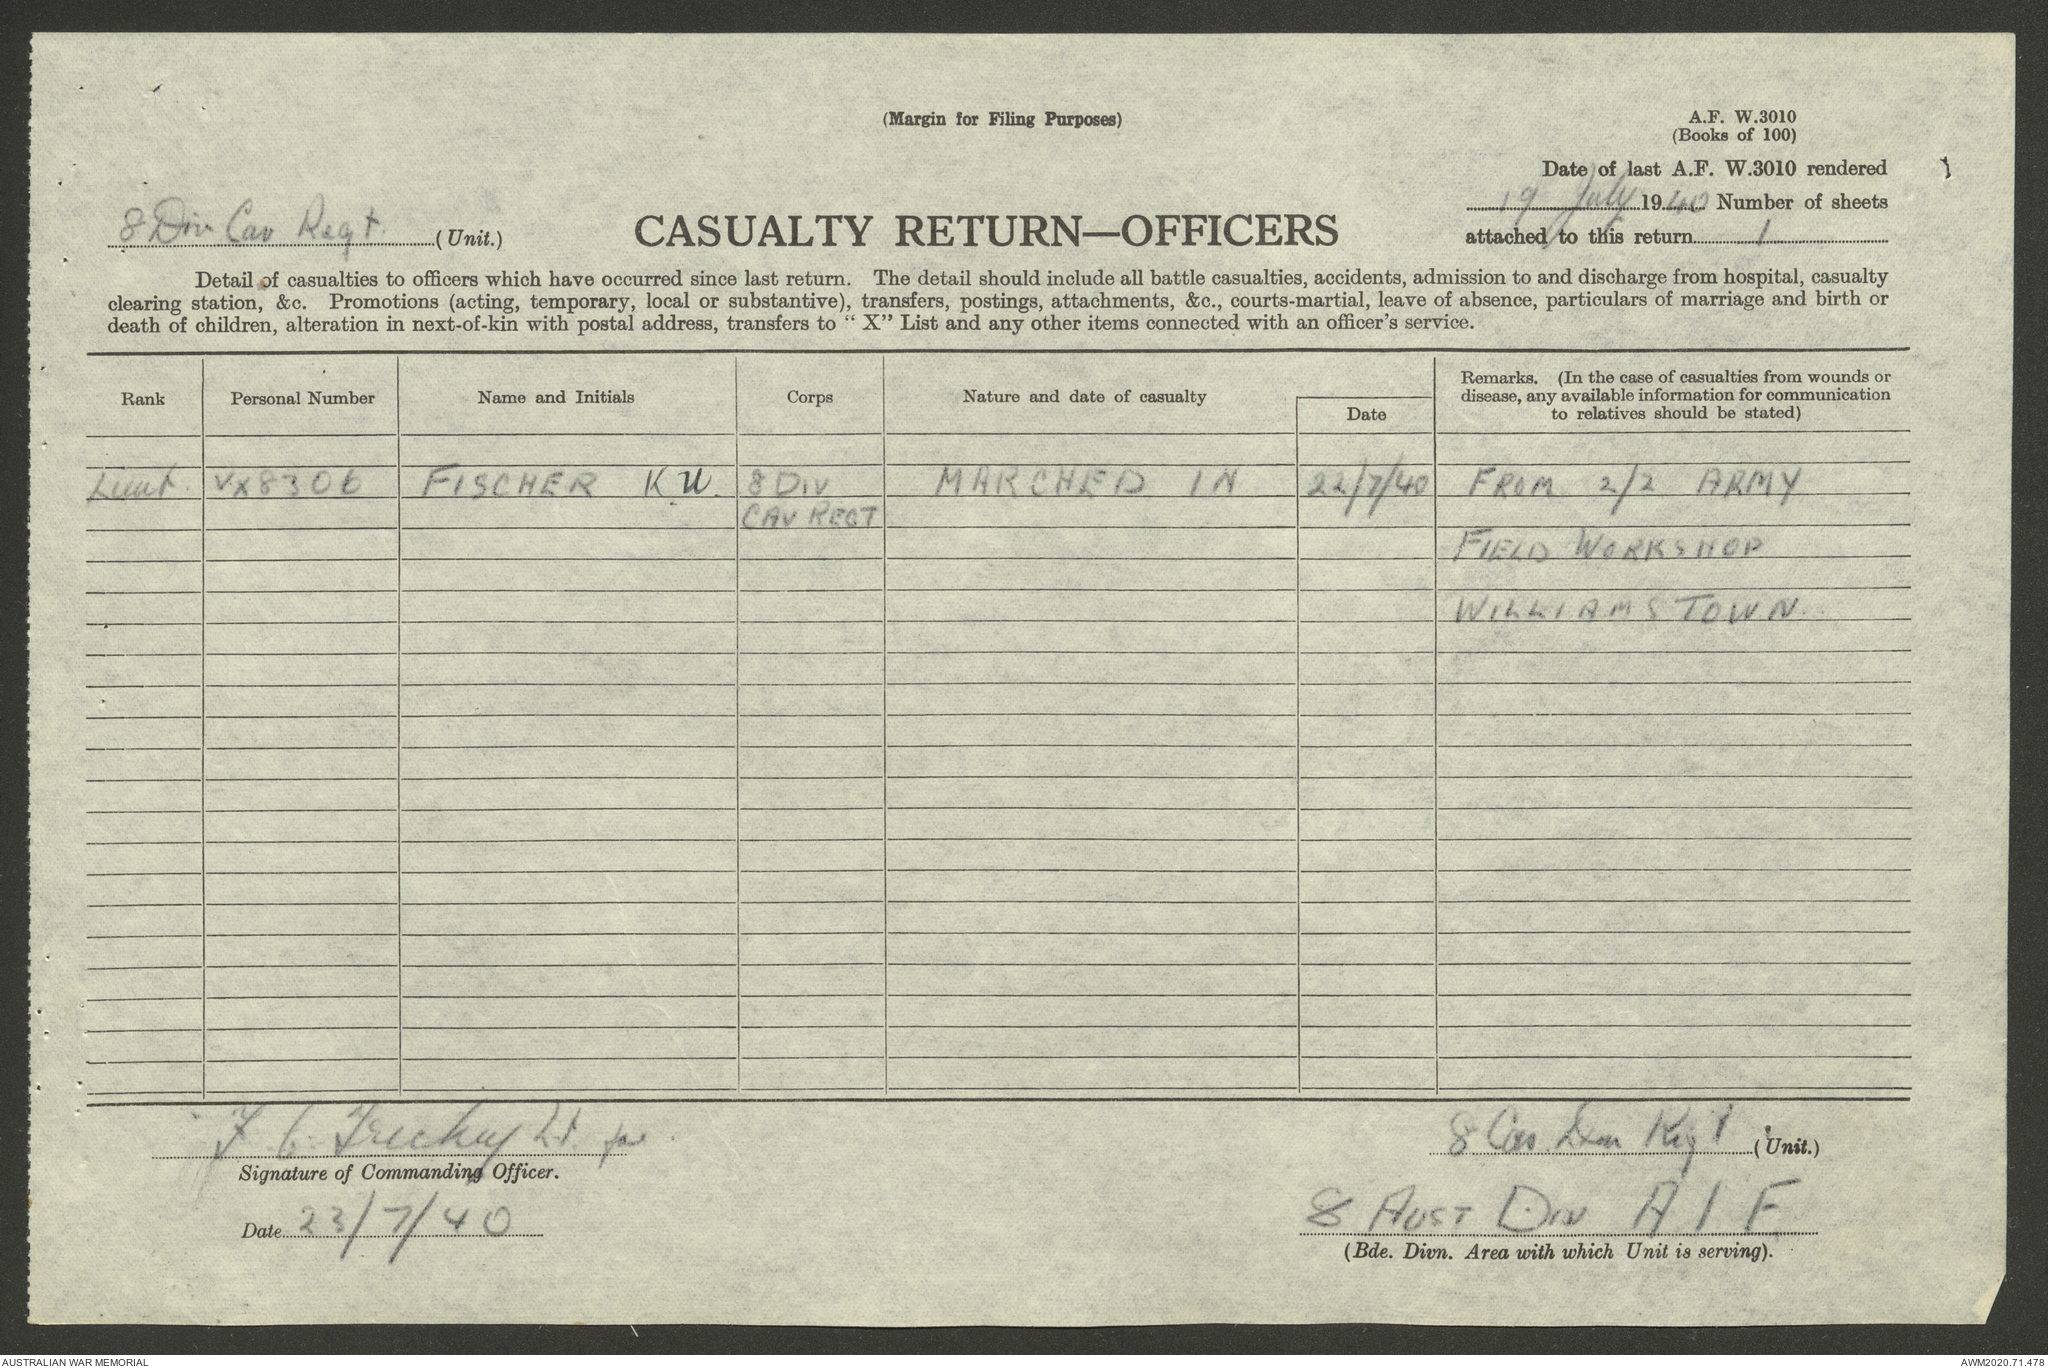 (Margin for Filing Purposes)
A.F. W.3010
(Books of 100)
Date of last A.F. W.3010 rendered
19 July 1940 Number of sheets
attached to this return 1
8 Div Cav Regt. (Unit.)
CASUALTY RETURN—OFFICERS
Detail of casualties to officers which have occurred since last return. The detail should include all battle casualties, accidents, admission to and discharge from hospital, casualty
clearing station, &c. Promotions (acting, temporary, local or substantive), transfers, postings, attachments, &c., courts-martial, leave of absence, particulars of marriage and birth or
death of children, alteration in next-of-kin with postal address, transfers to “ X” List and any other items connected with an officer's service.
Rank Personal Number Name and Initials Corps Nature and date of casualty Date
Remarks. (In the case of casualties from wounds or
disease, any available information for communication
to relatives should be stated)
Lieut. VX8306 FISCHER K.U. 8 DIV MARCHED IN 22/7/40 FROM 2/2 ARMY
CAV REGT
FIELD WORKSHOP
WILLIAMSTOWN.
Lt. for
Signature of Commanding Officer.
Date 23/7/40
8 Cav Div Regt (Unit.)
8 AUST DIV A I F
(Bde. Divn. Area with which Unit is serving).
AUSTRALIAN WAR MEMORIAL
AWM2020.71.478